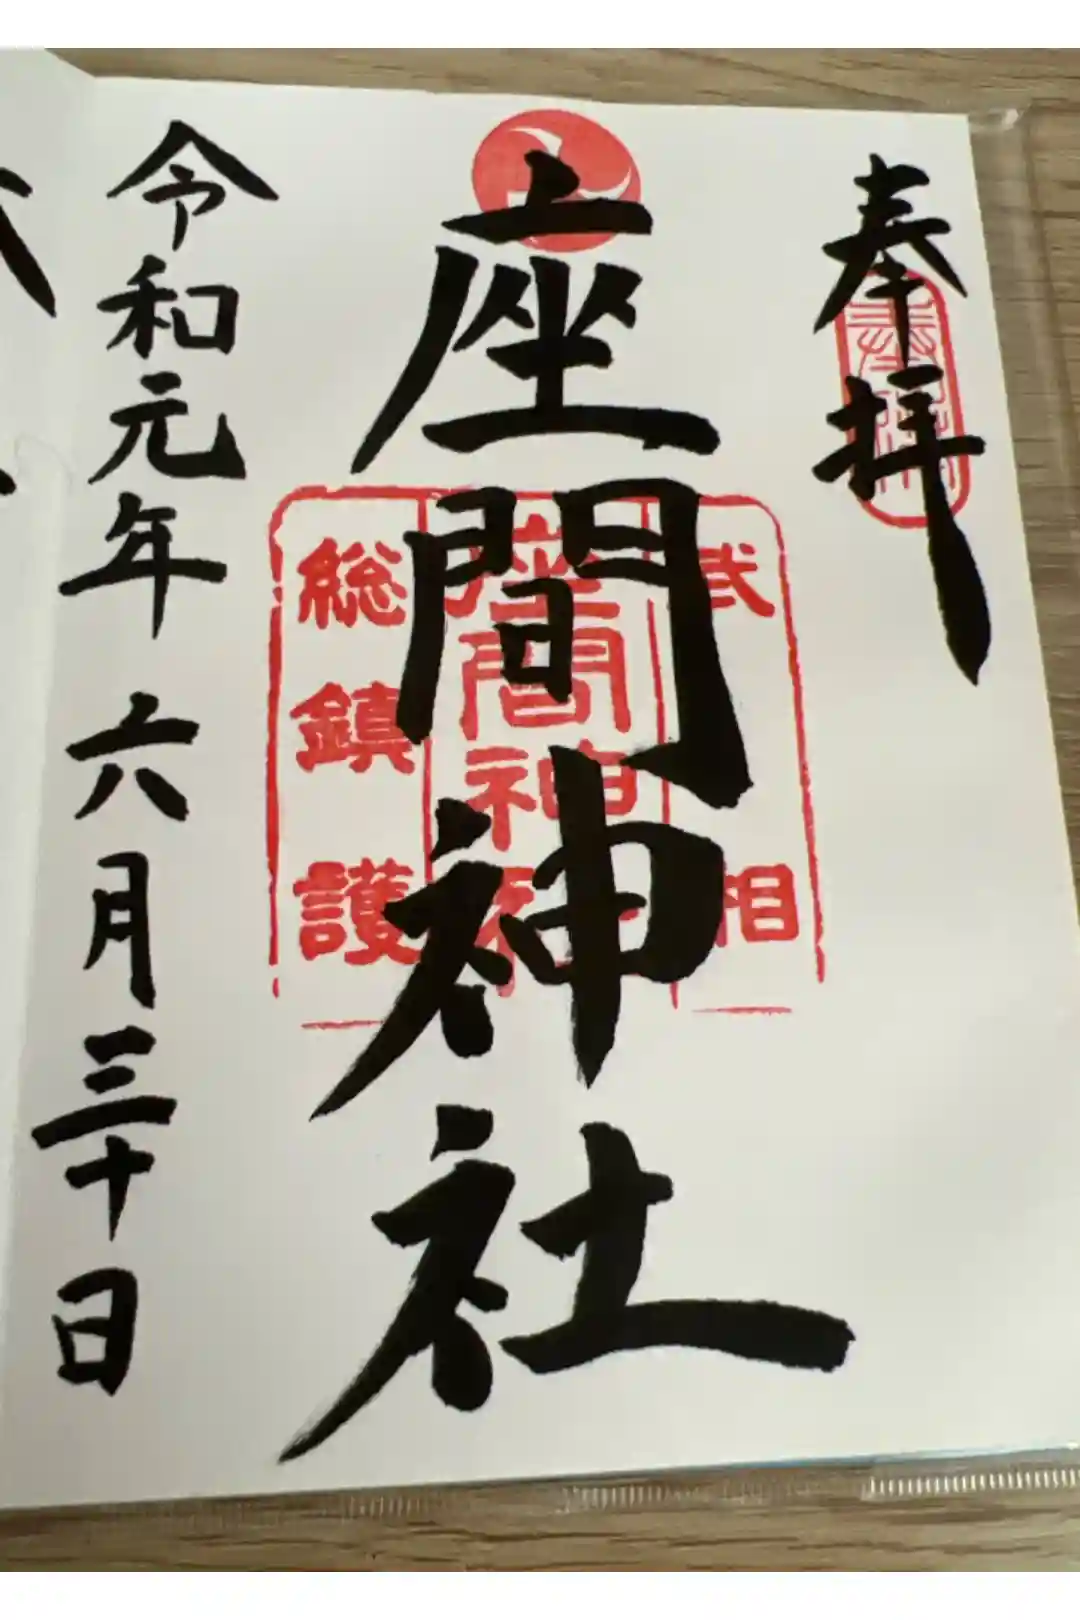 奉拝
武相
座間神社
座間神社
総鎮護
令和元年六月三十日